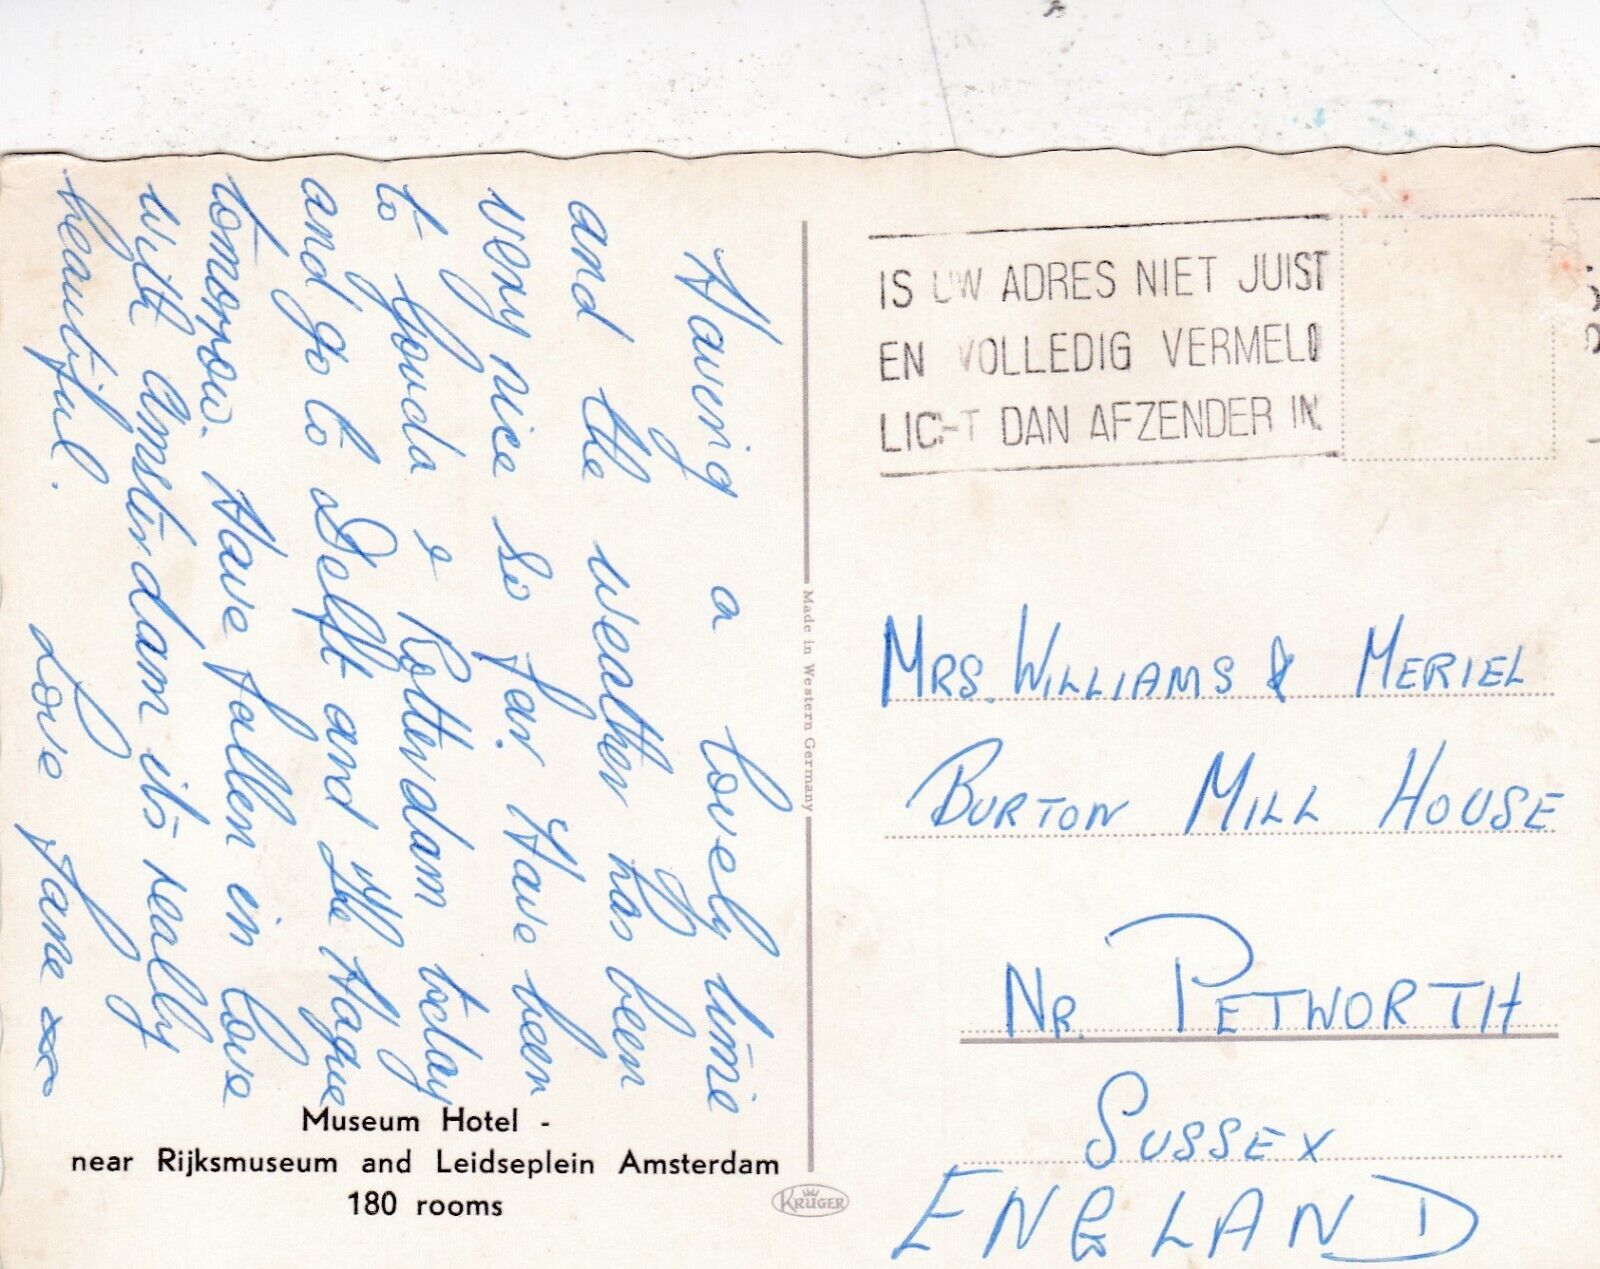 Having a lovely time
and the weather has been
very nice so far. Have been
to Gouda & Rotterdam today
and go to Delft and The Hague
tomorrow. Have fallen in love
with Amsterdam its really
beautiful.
Love Jane xxx
Museum Hotel -
near Rijksmuseum and Leidseplein Amsterdam
180 rooms
Made in Western Germany
KRÜGER
IS UW ADRES NIET JUIST
EN VOLLEDIG VERMELD
LICHT DAN AFZENDER IN
MRS. WILLIAMS & MERIEL
BURTON MILL HOUSE
NR. PETWORTH
SUSSEX
ENGLAND